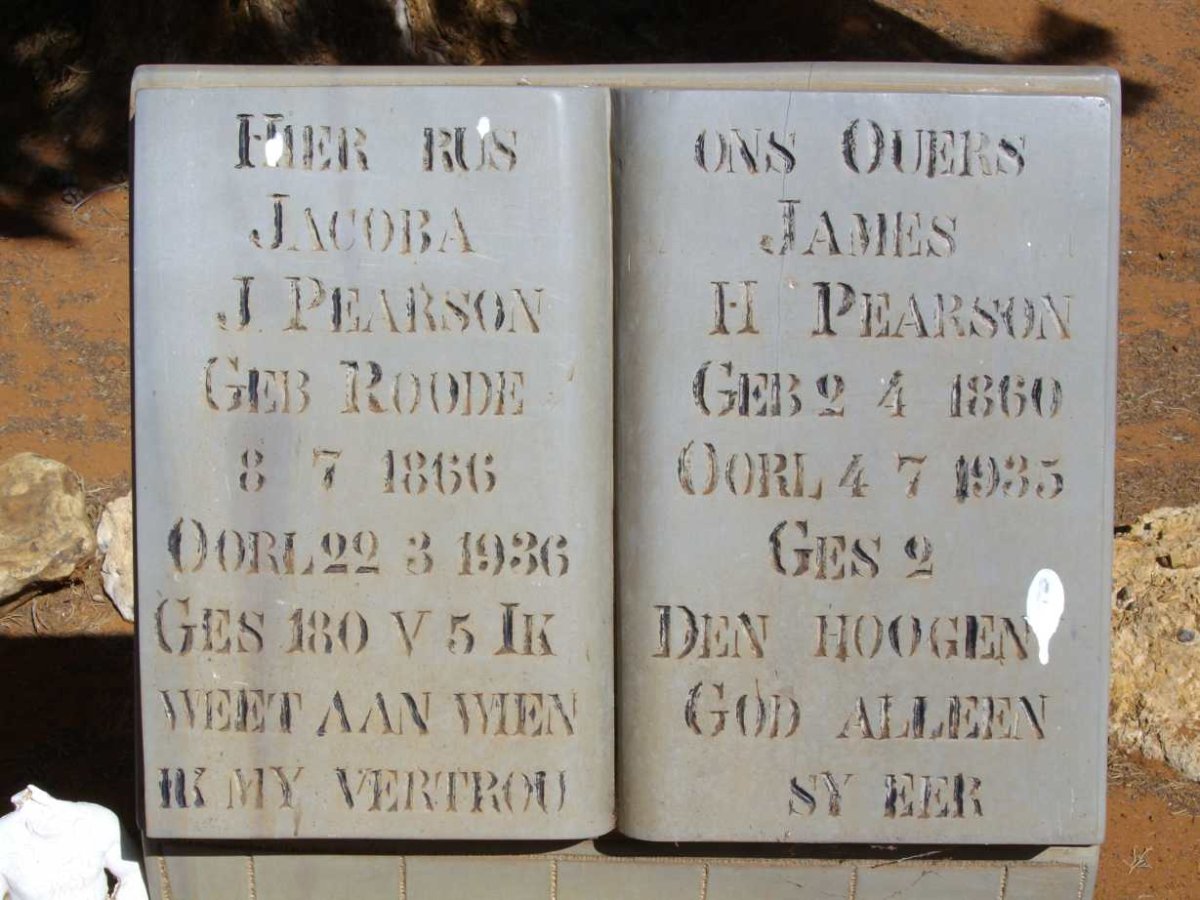 HIER RUS
JACOBA
J PEARSON
GEB ROODE
8 7 1866
OORL 22 3 1936
GES 180 V 5 IK
WEET AAN WIEN
IK MY VERTROU
ONS OUERS
JAMES
H PEARSON
GEB 2 4 1860
OORL 4 7 1935
GES 2
DEN HOOGEN
GOD ALLEEN
SY EER